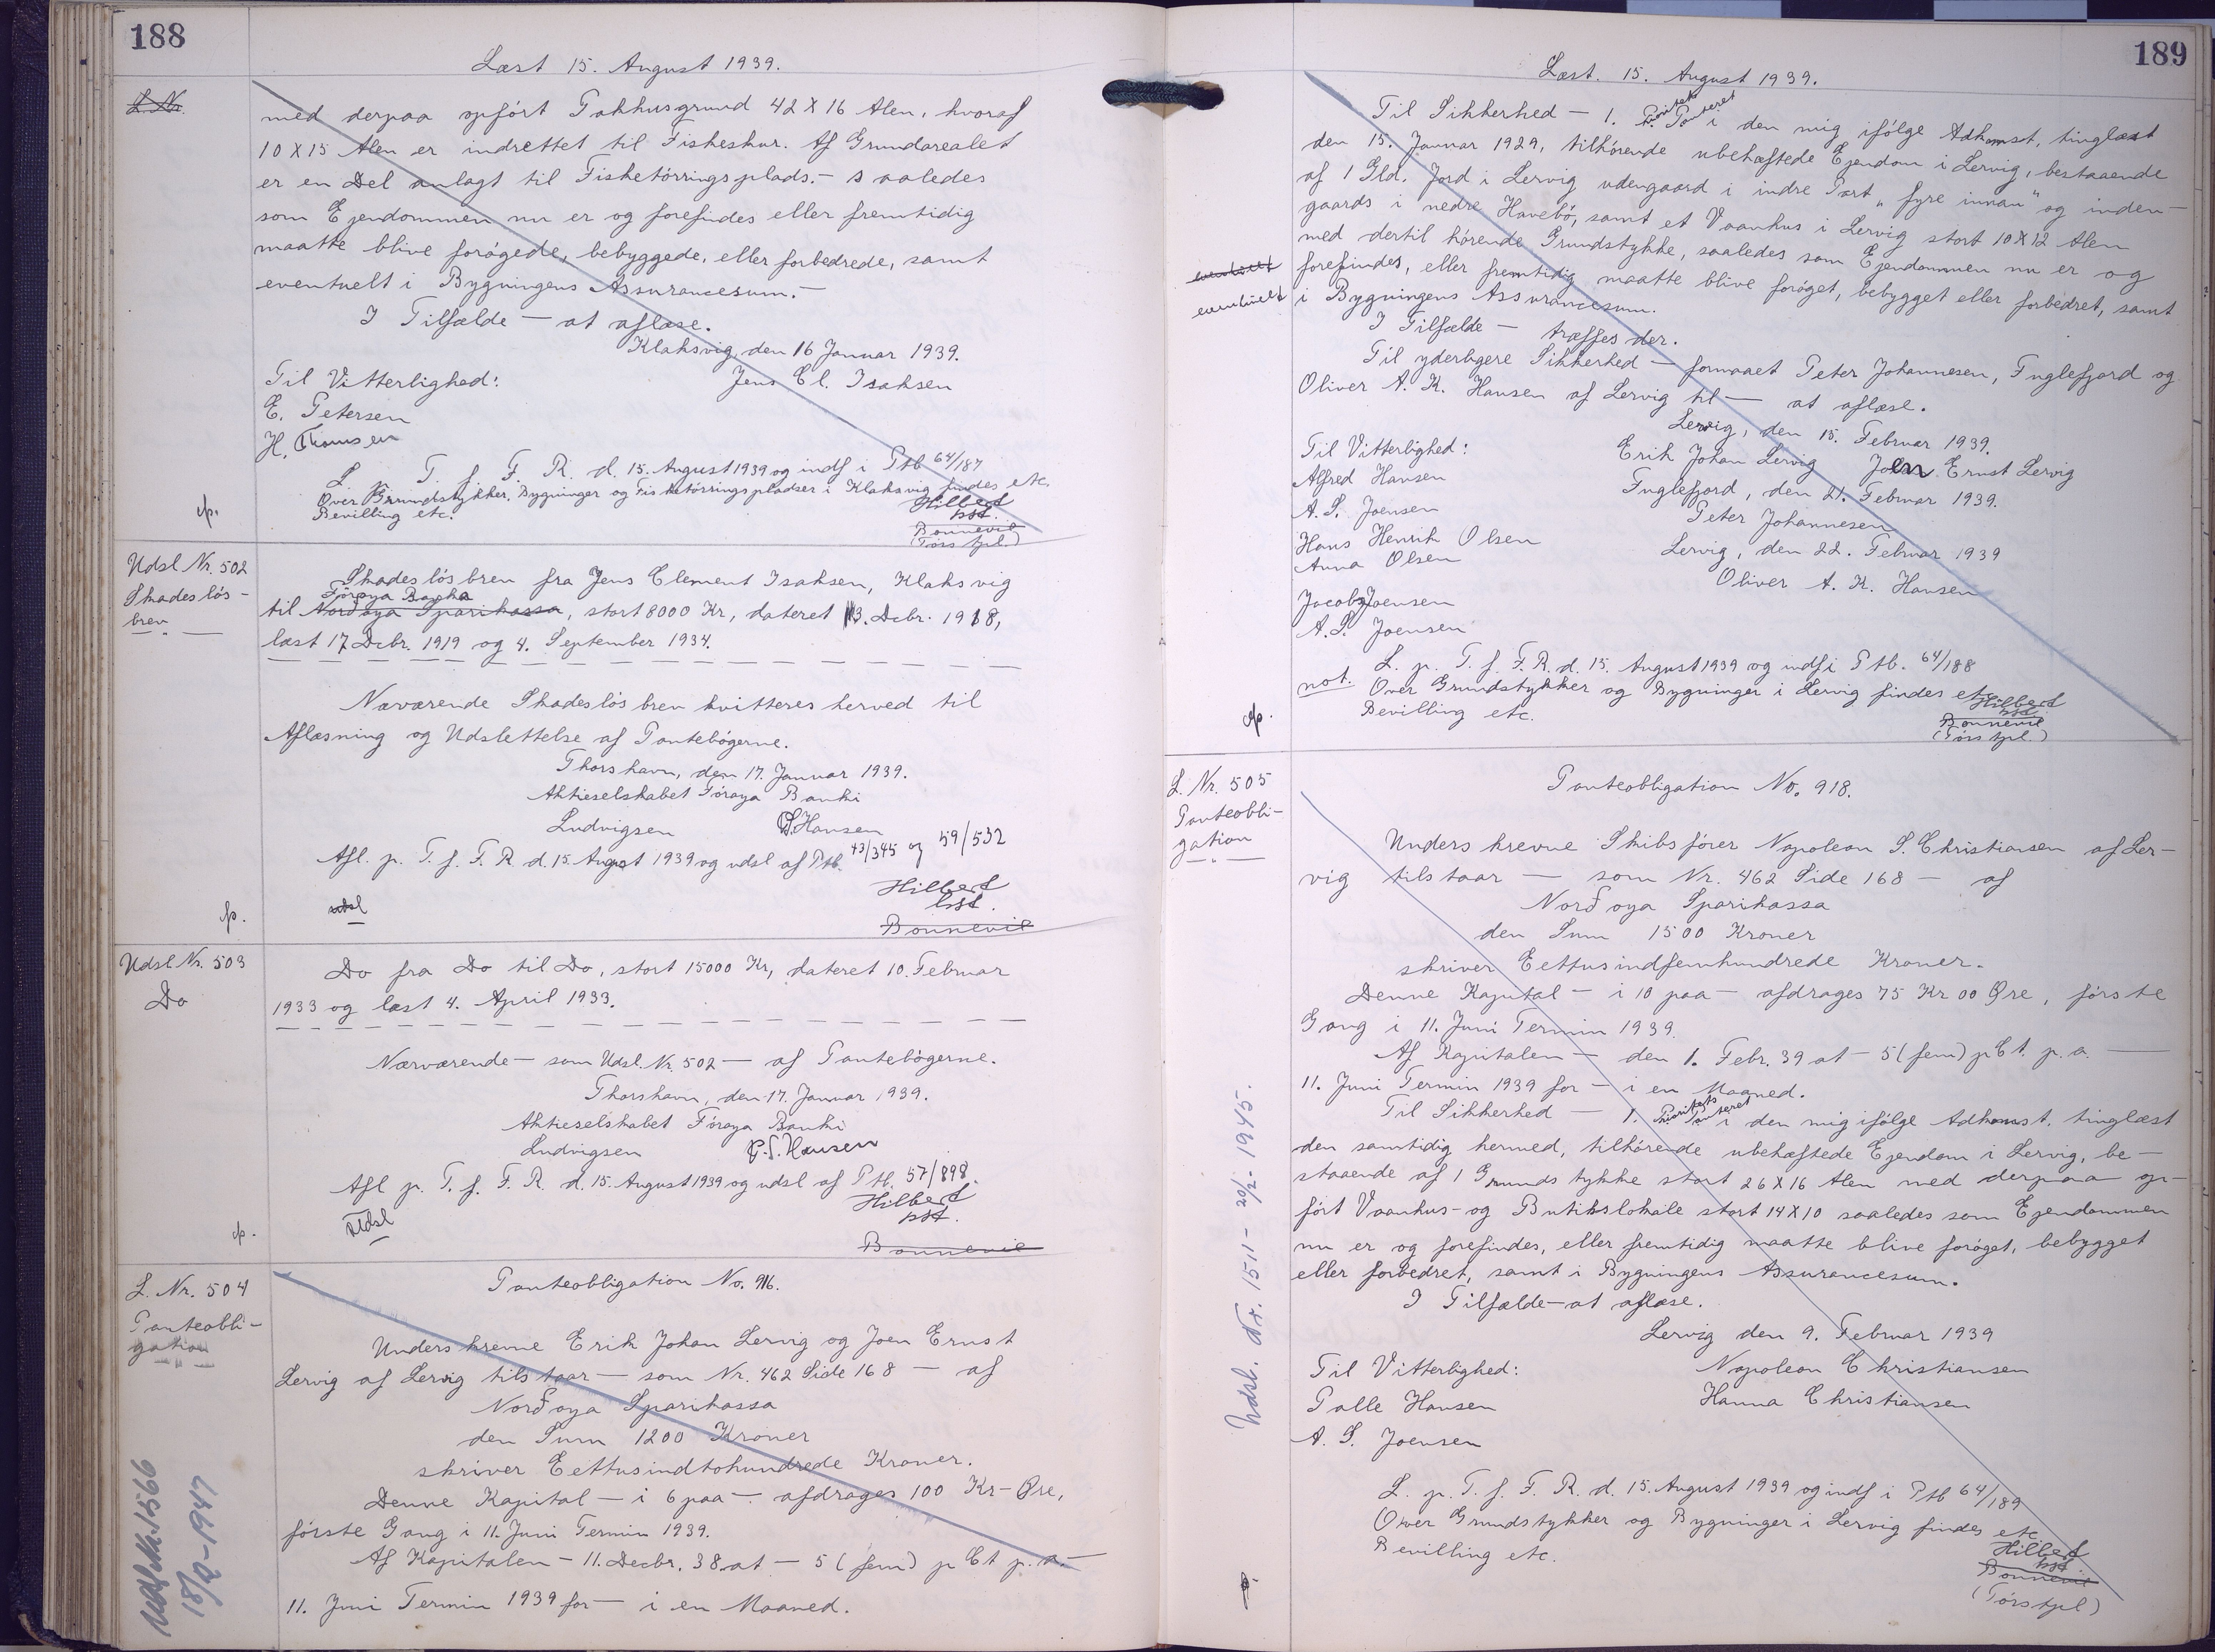 188
Læst 15. August 1939.
L. Nr.
med derpaa opført Pakhusgrund 42 X 16 Alen, hvoraf
10 X 15 Alen er indrettet til Fiskeskur. Af Grundarealet
er en Del anlagt til Fisketørringsplads. - saaledes
som Ejendommen nu er og forefindes eller fremtidig
maatte blive forøgede, bebyggede, eller forbedrede, samt
eventuelt i Bygningens Assurancesum. -
I Tilfælde — at aflæse.
Klaksvig, den 16 Januar 1939.
Til Vitterlighed: Jens Cl. Isaksen
E. Petersen
H. Thomsen
L. p. T. f. F. R. d. 15. August 1939 og indf i Ptb 64/187
Over Grundstykker, Bygninger og Fisketørringspladser i Klaksvig findes etc.
Bevilling etc. Hilbert
hst.
Bonnevie
(Tórs hpl.)
cp.
Udsl Nr. 502
Skadesløs-
brev
Skadesløsbrev fra Jens Clement Isaksen, Klaksvig
Föroya Banka
til Norðoya Sparikassa, stort 8000 Kr, dateret 13. Debr. 1918,
læst 17 Debr. 1919 og 4. September 1934.
Nærværende Skadesløsbrev kvitteres herved til
Aflæsning og Udslettelse af Pantebøgerne.
Thorshavn, den 17. Januar 1939.
Aktieselskabet Föroya Banki
Ludvigsen P.S. Hansen
Afl. p. T. f. F. R. d. 15. August 1939 og udsl af Ptb. 43/345 og 59/532
Hilbert
hst.
Bonnevie
udsl
cp.
Udsl Nr. 503
Do
Do fra Do til Do, stort 15000 Kr, dateret 10. Februar
1933 og læst 4. April 1933.
Nærværende — som Udsl. Nr. 502 — af Pantebøgerne.
Thorshavn, den 17. Januar 1939.
Aktieselskabet Föroya Banki
Ludvigsen P.S. Hansen
Afl p. T. f. F. R. d. 15. August 1939 og udsl af Ptb. 57/898.
Hilbert
hst.
Udsl
Bonnevie
cp.
L. Nr. 504
Panteobli-
gation
Panteobligation No. 916.
Underskrevne Erik Johan Lervig og Joen Ernst
Lervig af Lervig tilstaar — som Nr. 462 Side 168 — af
Norðoya Sparikassa
den Sum 1200 Kroner
skriver Eettusindtohundrede Kroner.
Denne Kapital — i 6 paa — afdrages 100 Kr - Øre,
første Gang i 11. Juni Termin 1939.
Af Kapitalen — 11. Decbr. 38 at — 5 (fem) p Ct p. a. —
11. Juni Termin 1939 for — i en Maaned.
18/9-1947
189
Læst. 15. August 1939.
Til Sikkerhed — 1. Prioritets Panteret i den mig ifølge Adkomst, tinglæst
den 15. Januar 1929, tilhørende ubehæftede Ejendom i Lervig, bestaaende
af 1 Gld. Jord i Lervig udengaard i indre Part "fyre innan" og inden-
gaards i nedre Havebø, samt et Vaanhus i Lervig stort 10 X 12 Alen
med dertil hørende Grundstykke, saaledes som Ejendommen nu er og
forefindes, eller fremtidig maatte blive forøget, bebygget eller forbedret, samt
eventuelt
eventuelt i Bygningens Assurancesum.
I Tilfælde — træffes der.
Til yderligere Sikkerhed — formaaet Peter Johannesen, Fuglefjord og
Oliver A. K. Hansen af Lervig til — at aflæse.
Lervig, den 15. Februar 1939.
Til Vitterlighed: Erik Johan Lervig Joen Ernst Lervig
Alfred Hansen Fuglefjord, den 21. Februar 1939.
A. S. Joensen Peter Johannesen
Hans Henrik Olsen Lervig, den 22. Februar 1939
Anna Olsen Oliver A. K. Hansen
Jacob Joensen
A. S. Joensen
L. p. T. f. F. R. d. 15. August 1939 og indf i Ptb. 64/188
not. Over Grundstykker og Bygninger i Lervig findes etc.
Bevilling etc. Hilbert
hst.
Bonnevie
(Tórs hpl.)
cp.
L. Nr. 505
Panteobli-
gation
Panteobligation No. 918.
Underskrevne Skibsfører Napoleon S. Christiansen af Ler-
vig tilstaar — som Nr. 462 Side 168 — af
Norðoya Sparikassa
den Sum 1500 Kroner
skriver Eettusindfemhundrede Kroner.
Denne Kapital — i 10 paa — afdrages 75 Kr 00 Øre, første
Gang i 11. Juni Termin 1939.
Af Kapitalen — den 1. Febr. 39 at — 5 (fem) p Ct. p. a. —
11. Juni Termin 1939 for — i en Maaned.
Til Sikkerhed — 1. Prioritets Panteret i den mig ifølge Adkomst, tinglæst
den samtidig hermed, tilhørende ubehæftede Ejendom i Lervig, be-
staaende af 1 Grundstykke stort 26 X 16 Alen med derpaa op-
ført Vaanhus- og Butikslokale stort 14 X 10 saaledes som Ejendommen
nu er og forefindes, eller fremtidig maatte blive forøget, bebygget
eller forbedret, samt i Bygningens Assurancesum.
I Tilfælde — at aflæse.
Lervig den 9. Februar 1939
Til Vitterlighed: Napoleon Christiansen
Palle Hansen Hanna Christiansen
A. S. Joensen
L. p. T. f. F. R. d. 15. August 1939 og indf i Ptb 64/189
Over Grundstykker og Bygninger i Lervig findes etc
Bevilling etc. Hilbert
hst.
Bonnevie
(Tórs hpl)
Udsl. Nr. 151 - 20/2 - 1945.